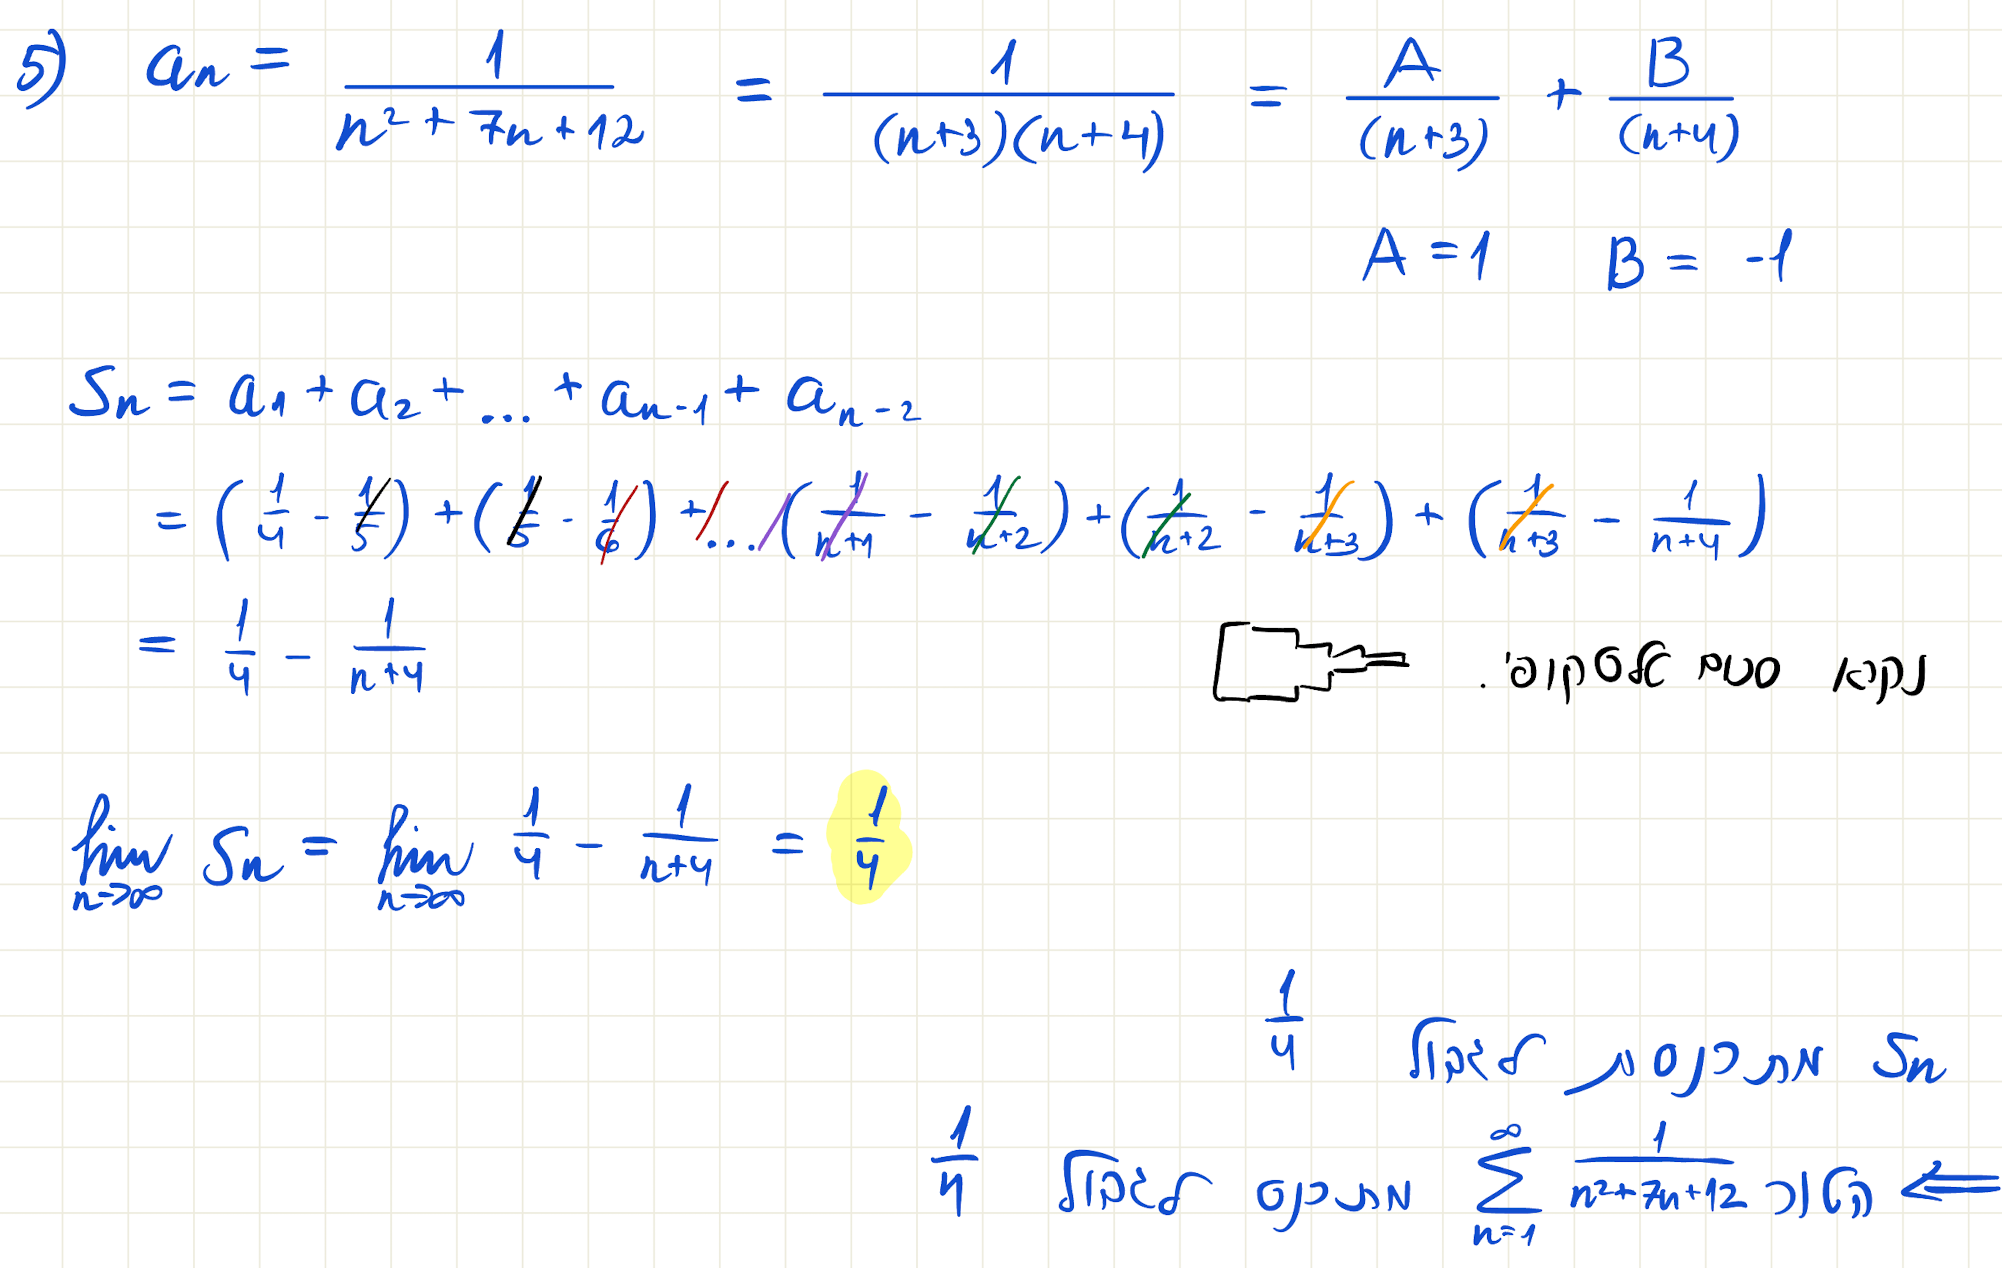 5) aₙ = 1/(n² + 7n + 12) = 1/((n+3)(n+4)) = A/(n+3) + B/(n+4)
A = 1 B = -1
Sₙ = a₁ + a₂ + ... + aₙ₋₁ + aₙ₋₂
= (1/4 - 1/5) + (1/5 - 1/6) + ... (1/(n+1) - 1/(n+2)) + (1/(n+2) - 1/(n+3)) + (1/(n+3) - 1/(n+4))
= 1/4 - 1/(n+4)
נקרא סכום טלסקופי.
lim n→∞ Sₙ = lim n→∞ 1/4 - 1/(n+4) = 1/4
Sₙ מתכנסת לגבול 1/4
⇐ הטור ∑ n=1 ∞ 1/(n²+7n+12) מתכנס לגבול 1/4